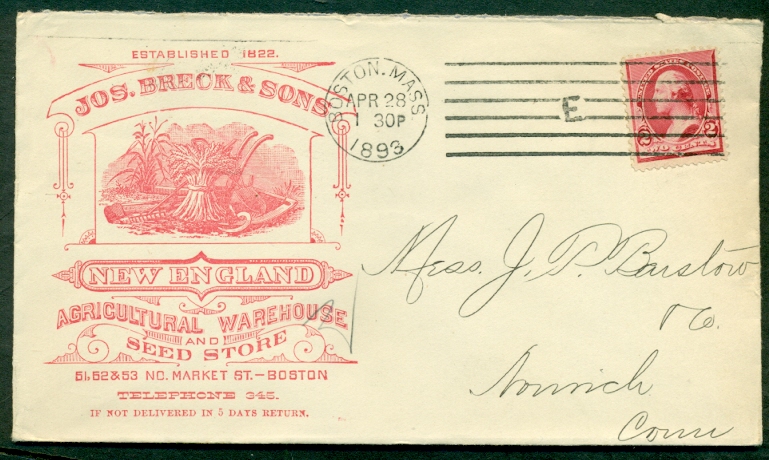 ESTABLISHED 1822.
JOS. BRECK & SONS
NEW ENGLAND
AGRICULTURAL WAREHOUSE
AND
SEED STORE
51, 52 & 53 NO. MARKET ST. — BOSTON
TELEPHONE 345.
IF NOT DELIVERED IN 5 DAYS RETURN.
BOSTON. MASS
APR 28
1 30P
1893
E
2 2
TWO CENTS
Mess. J. P. Barstow
& Co.
Norwich
Conn